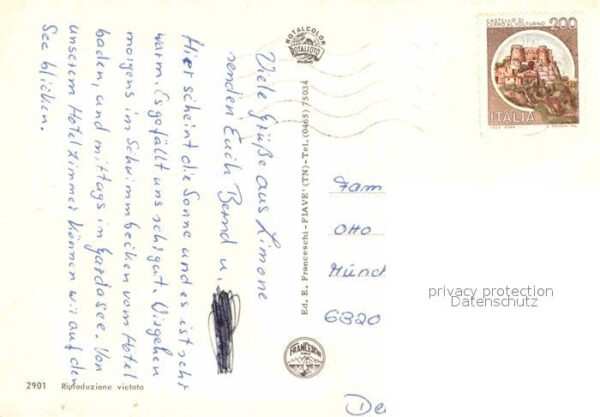 Viele Grüße aus Limone
senden Euch Bernd u.
Hier scheint die Sonne und es ist sehr
warm. Es gefällt uns sehr gut. Wir gehen
morgens im Schwimmbecken vom Hotel
baden, und mittags im Gardasee. Von
unserem Hotelzimmer können wir auf den
See blicken.
2901 Riproduzione vietata
Ed. E. Franceschi - FIAVE' (TN) - Tel. (0465) 75034
ROTALCOLOR
ROTALFOTO
MILANO
FRANCESCHI
CASTELLO DI
CERRO AL VOLTURNO
200
ITALIA
Fam
Otto
Münch
6320
De
privacy protection
Datenschutz